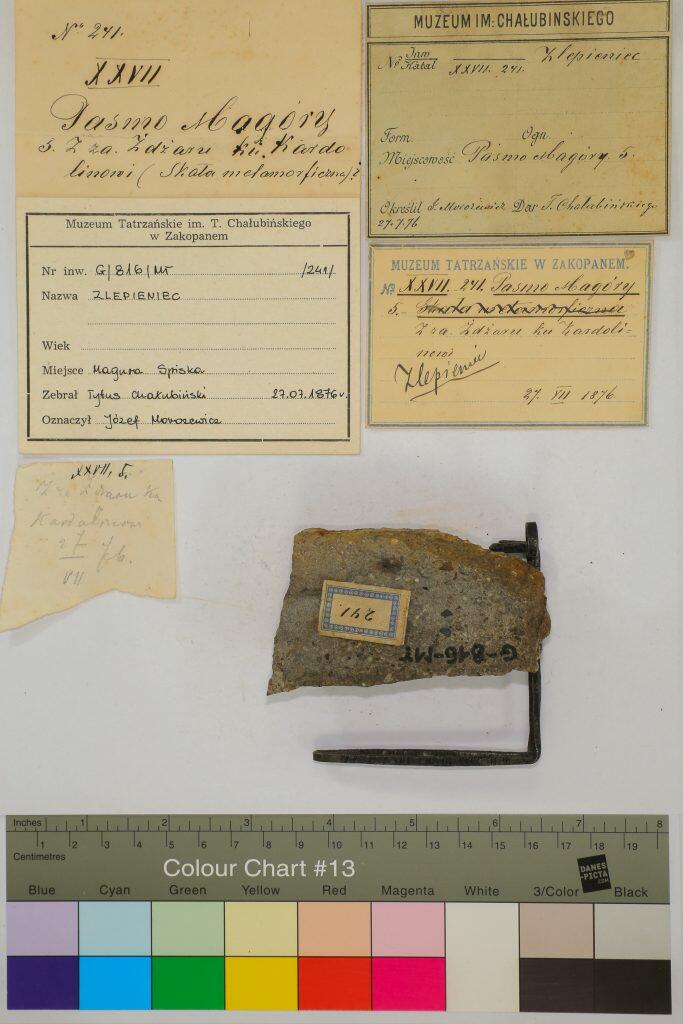 No 241.
XXVII
Pasmo Magóry
5. Z za. Żdżaru ku Kardo-
linowi (Skała metamorficzna)?
MUZEUM IM: CHAŁUBINSKIEGO
No Inw / Katal XXVII. 241. Zlepieniec
Form. Ogn.
Miejscowość Pasmo Magóry. 5.
Określił J. Morozewicz Dar T. Chałubińskiego
27.7.76
Muzeum Tatrzańskie im. T. Chałubińskiego
w Zakopanem
Nr inw. G/816/MT /241/
Nazwa ZLEPIENIEC
Wiek
Miejsce Magura Spiska
Zebrał Tytus Chałubiński 27.07.1876r.
Oznaczył Józef Morozewicz
MUZEUM TATRZAŃSKIE W ZAKOPANEM.
No XXVII. 241. Pasmo Magóry
5. Skała metamorficzna
Z za. Żdżaru ku Kardoli-
nowi
Zlepieniec
27. VII 1876
XXVII. 5.
Z za Żdżaru ku
Kardolinowi
27/VII 76.
241
G-816-MT
Inches 1 2 3 4 5 6 7 8
Centimetres 1 2 3 4 5 6 7 8 9 10 11 12 13 14 15 16 17 18 19
Colour Chart #13
DANES
-PICTA
.COM
Blue Cyan Green Yellow Red Magenta White 3/Color Black